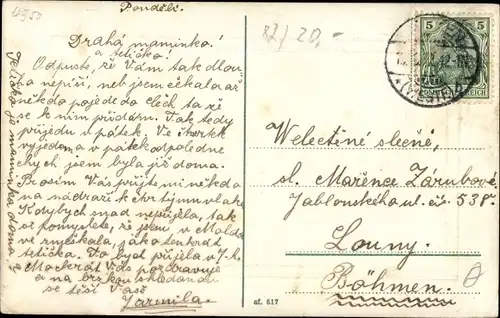 4350
Pondělí.
Drahá maminko!
a tetičko.
Odpusťte, že Vám tak dlouho
nepíši, neb jsem čekala až
někdo pojede do Čech ta že
se k ním přidám. Tak tedy
přijedu v pátek. Ve čtvrtek
vyjedu a v pátek odpoledne
chych jsem byla již doma.
Prosím Vás přijďte mi někdo
na nádraží k čtvrtýmu vlaku
Kdybych snad nepřijela, tak
si pomyslete, že jsem v
se zmýlikala, jako tenkrát
tetička. To bych přijela v
Mockrát Vás pozdravuje
a na brzkou shledanou
se těší Vaše
Jarmila.
Tetička je maminka doma
82/20,-
5 5
DEUTSCHES REICH
12-1
Welectěné slečně,
sl. Mařence Zárubové
Jablonského ul. čís. 538.
Louny.
Böhmen.
af. 517